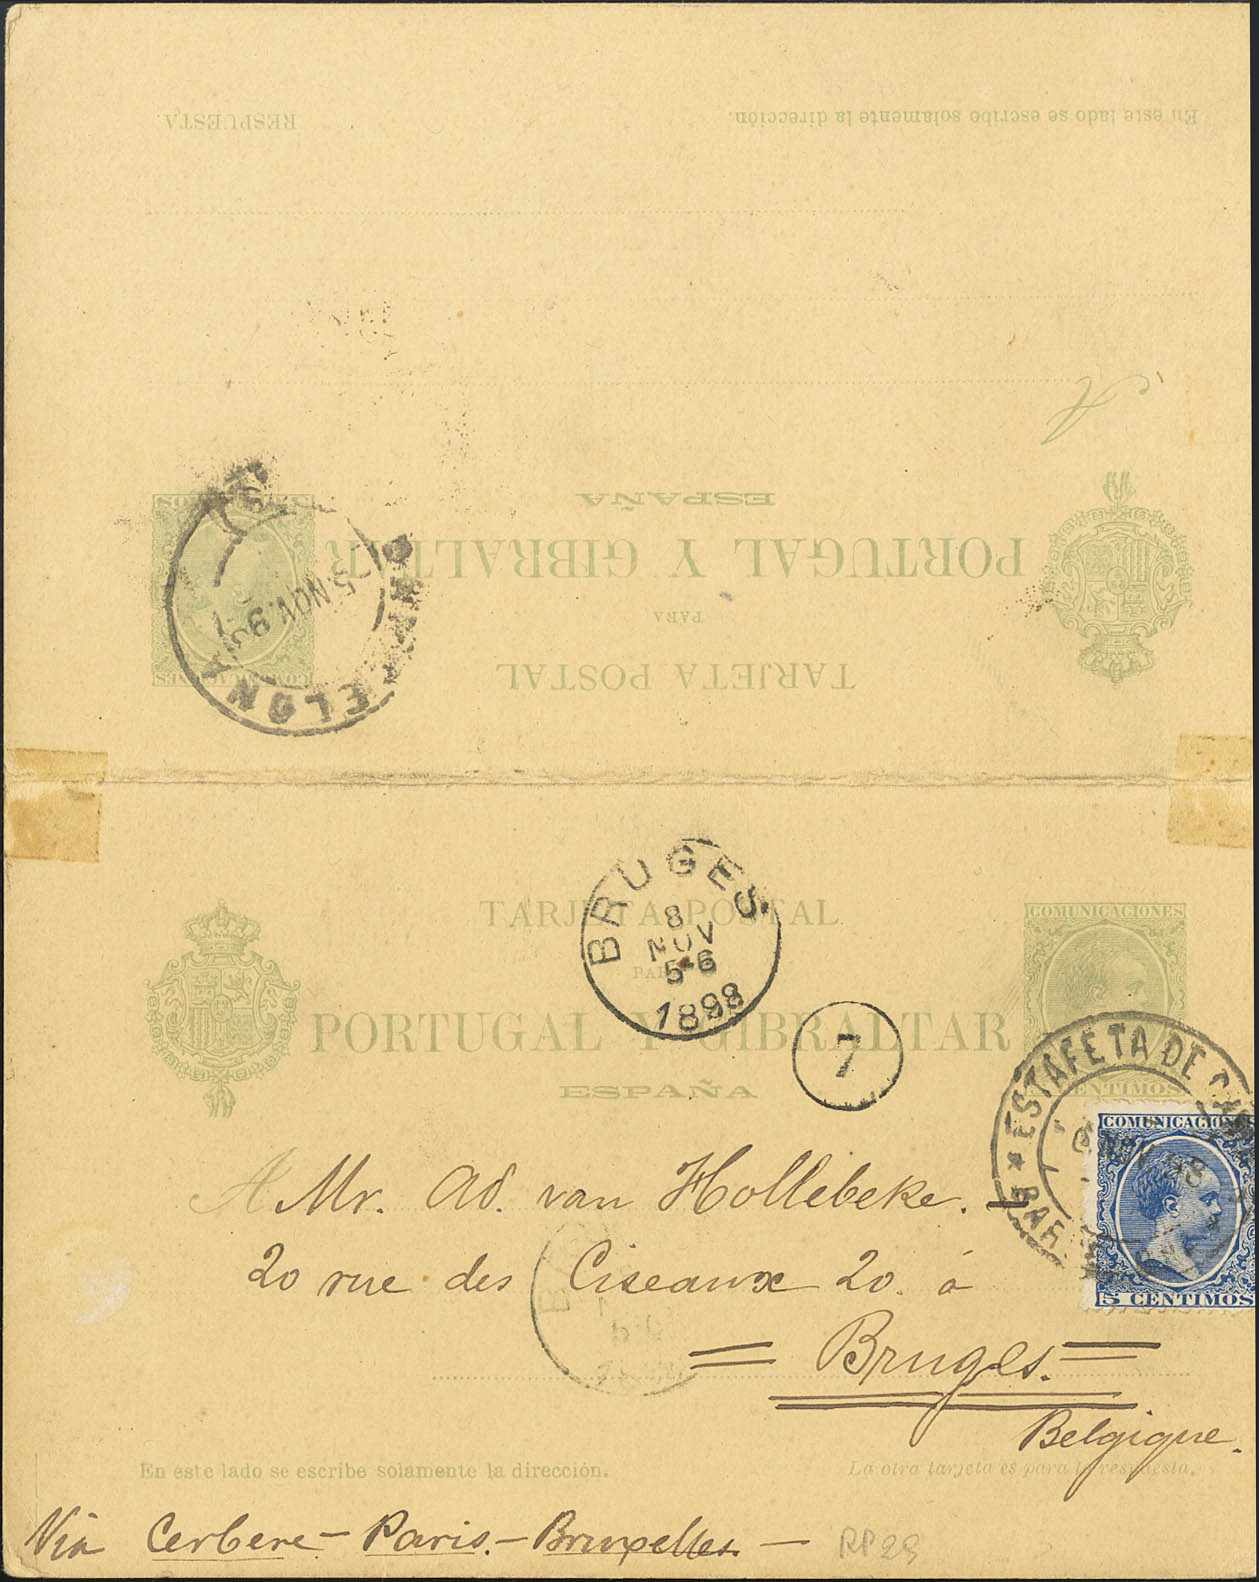 En este lado se escribe solamente la dirección.
RESPUESTA.
ESPAÑA
PORTUGAL Y GIBRALTAR
PARA
TARJETA POSTAL
5 NOV. 9
BRUGES
8
NOV
5-6
1898
TARJETA POSTAL
PORTUGAL Y GIBRALTAR
ESPAÑA
7
COMUNICACIONES
CENTIMOS
ESTAFETA DE
COMUNICACIONES
5 CENTIMOS
A Mr. Ad. van Hollebeke.
20 rue des Ciseaux 20. á
= Bruges. =
Belgique.
En este lado se escribe solamente la dirección.
La otra tarjeta es para la respuesta.
Via Cerbere - Paris. - Bruxelles. -
RP29